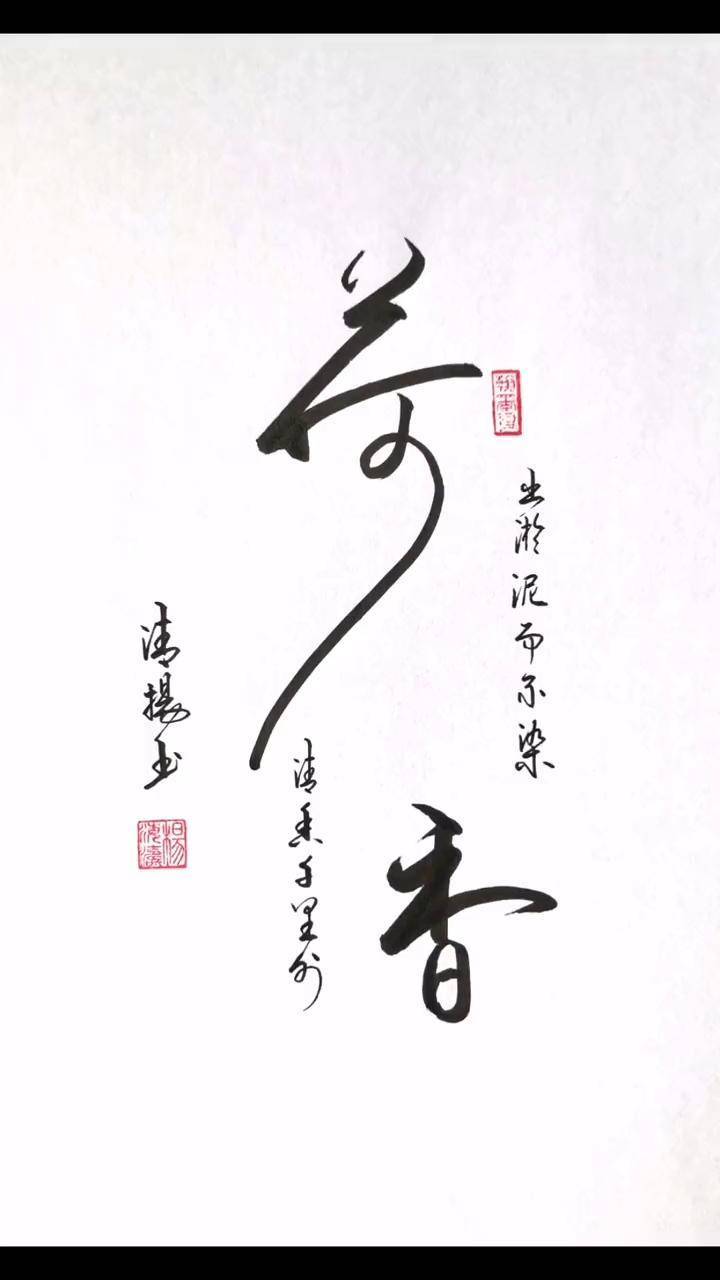 荷香
出淤泥而不染
清香千里外
清揚書